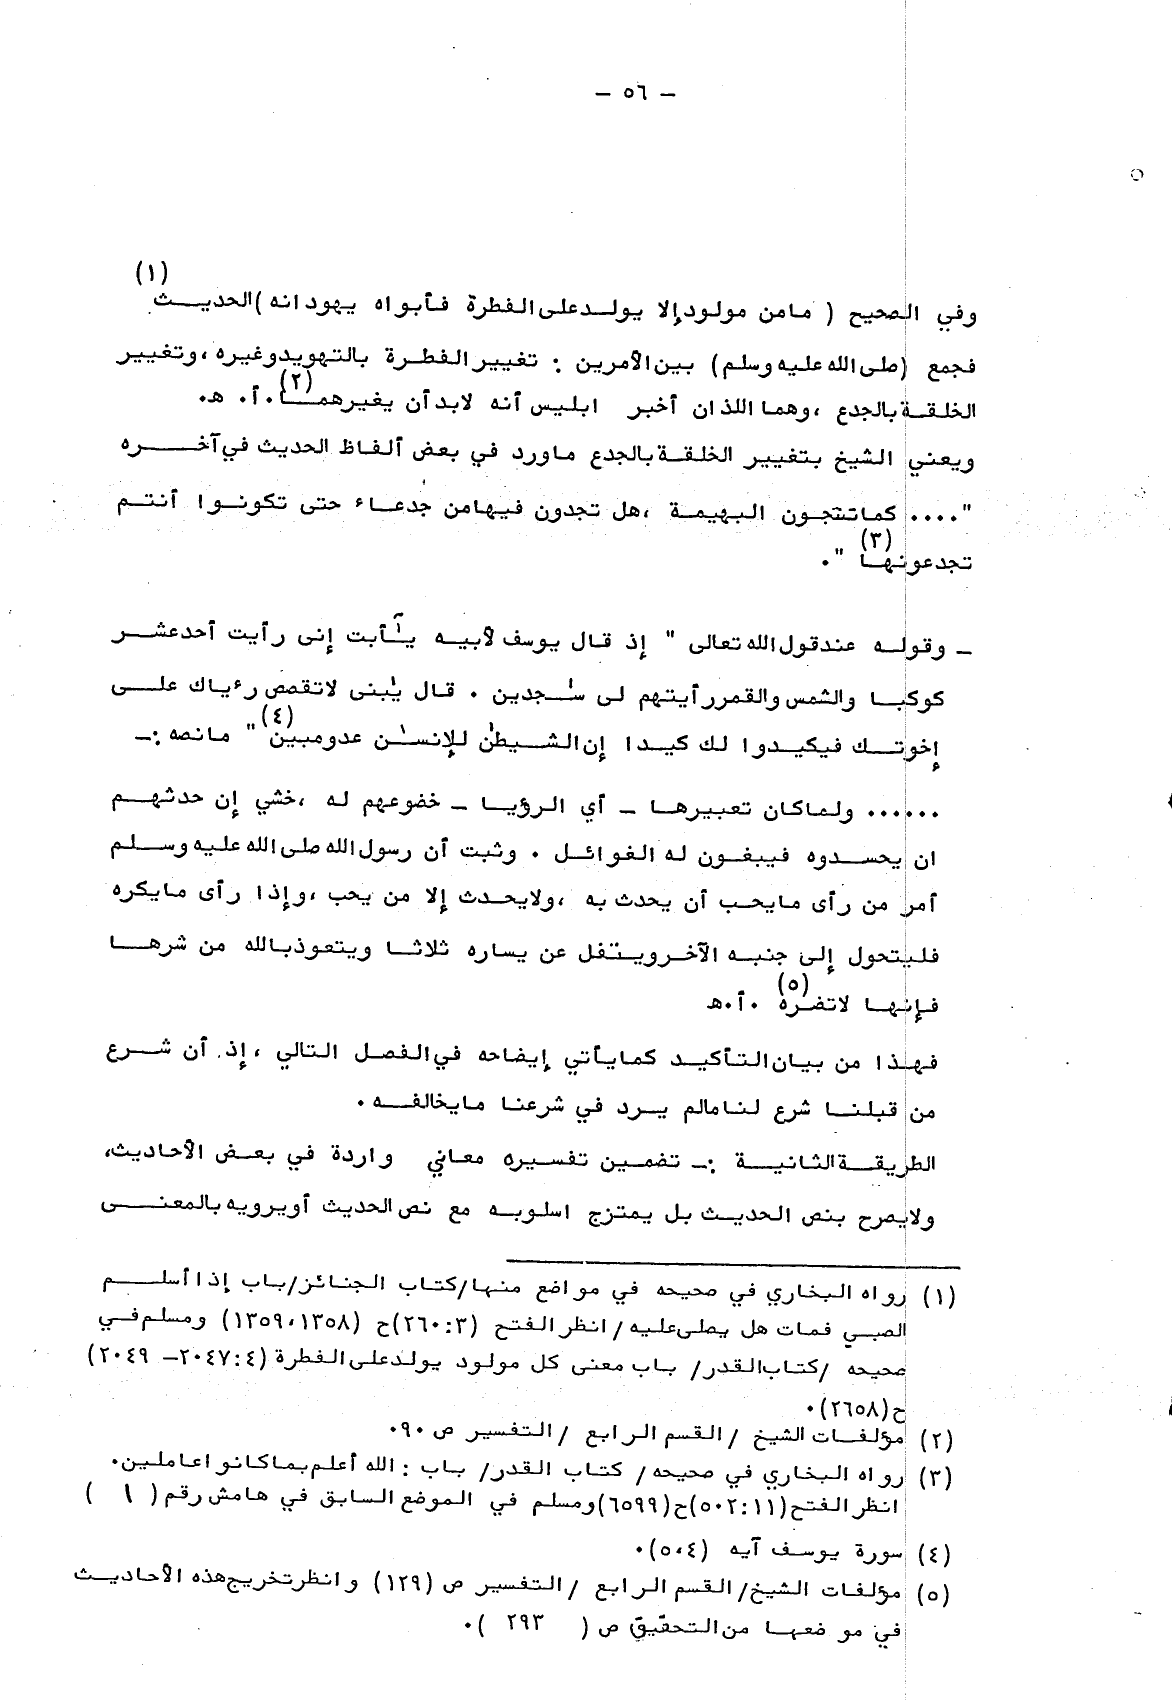 — ٥٦ —
وفي الصحيح ( مامن مولود إلا يولد على الفطرة فأبواه يهودانه ) الحديث (١)
فجمع (صلى الله عليه وسلم) بين الأمرين : تغيير الفطرة بالتهويد وغيره ، وتغيير
الخلقة بالجدع ، وهما اللذان أخبر ابليس أنه لابد أن يغيرهما (٢) . أ . هـ .
ويعني الشيخ بتغيير الخلقة بالجدع ماورد في بعض ألفاظ الحديث في آخره
" .... كما تنتجون البهيمة ، هل تجدون فيها من جدعاء حتى تكونوا أنتم
تجدعونها (٣) " .
ـ وقوله عند قول الله تعالى " إذ قال يوسف لأبيه يٰأبت إنى رأيت أحد عشر
كوكبا والشمس والقمر رأيتهم لى سٰجدين . قال يٰبنى لاتقصص رءياك على
إخوتك فيكيدوا لك كيدا إن الشيطٰن للإنسٰن عدو مبين (٤) " مانصه :ـ
...... ولما كان تعبيرها ـ أي الرؤيا ـ خضوعهم له ، خشي إن حدثهم
ان يحسدوه فيبغون له الغوائل . وثبت أن رسول الله صلى الله عليه وسلم
أمر من رأى مايحب أن يحدث به ، ولايحدث إلا من يحب ، وإذا رأى مايكره
فليتحول إلى جنبه الآخر ويتفل عن يساره ثلاثا ويتعوذ بالله من شرها
فإنها لاتضره (٥) . أ . هـ
فهذا من بيان التأكيد كما يأتي إيضاحه في الفصل التالي ، إذ أن شرع
من قبلنا شرع لنا مالم يرد في شرعنا مايخالفه .
الطريقة الثانية :ـ تضمين تفسيره معاني واردة في بعض الأحاديث،
ولايصرح بنص الحديث بل يمتزج اسلوبه مع نص الحديث أويرويه بالمعنى
(١) رواه البخاري في صحيحه في مواضع منها/كتاب الجنائز/باب إذا أسلم
الصبي فمات هل يصلى عليه / انظر الفتح (٢٦٠:٣)ح (١٣٥٩،١٣٥٨) ومسلم في
صحيحه /كتاب القدر/ باب معنى كل مولود يولد على الفطرة (٤:٢٠٤٧ – ٢٠٤٩)
ح(٢٦٥٨).
(٢) مؤلفات الشيخ / القسم الرابع / التفسير ص ٩٠.
(٣) رواه البخاري في صحيحه / كتاب القدر/ باب : الله أعلم بما كانوا عاملين.
انظر الفتح (٥٠٢:١١)ح(٦٥٩٩) ومسلم في الموضع السابق في هامش رقم ( ١ )
(٤) سورة يوسف آيه (٥،٤).
(٥) مؤلفات الشيخ/ القسم الرابع / التفسير ص (١٢٩) وانظر تخريج هذه الأحاديث
في موضعها من التحقيق ص ( ٢٩٣ ).